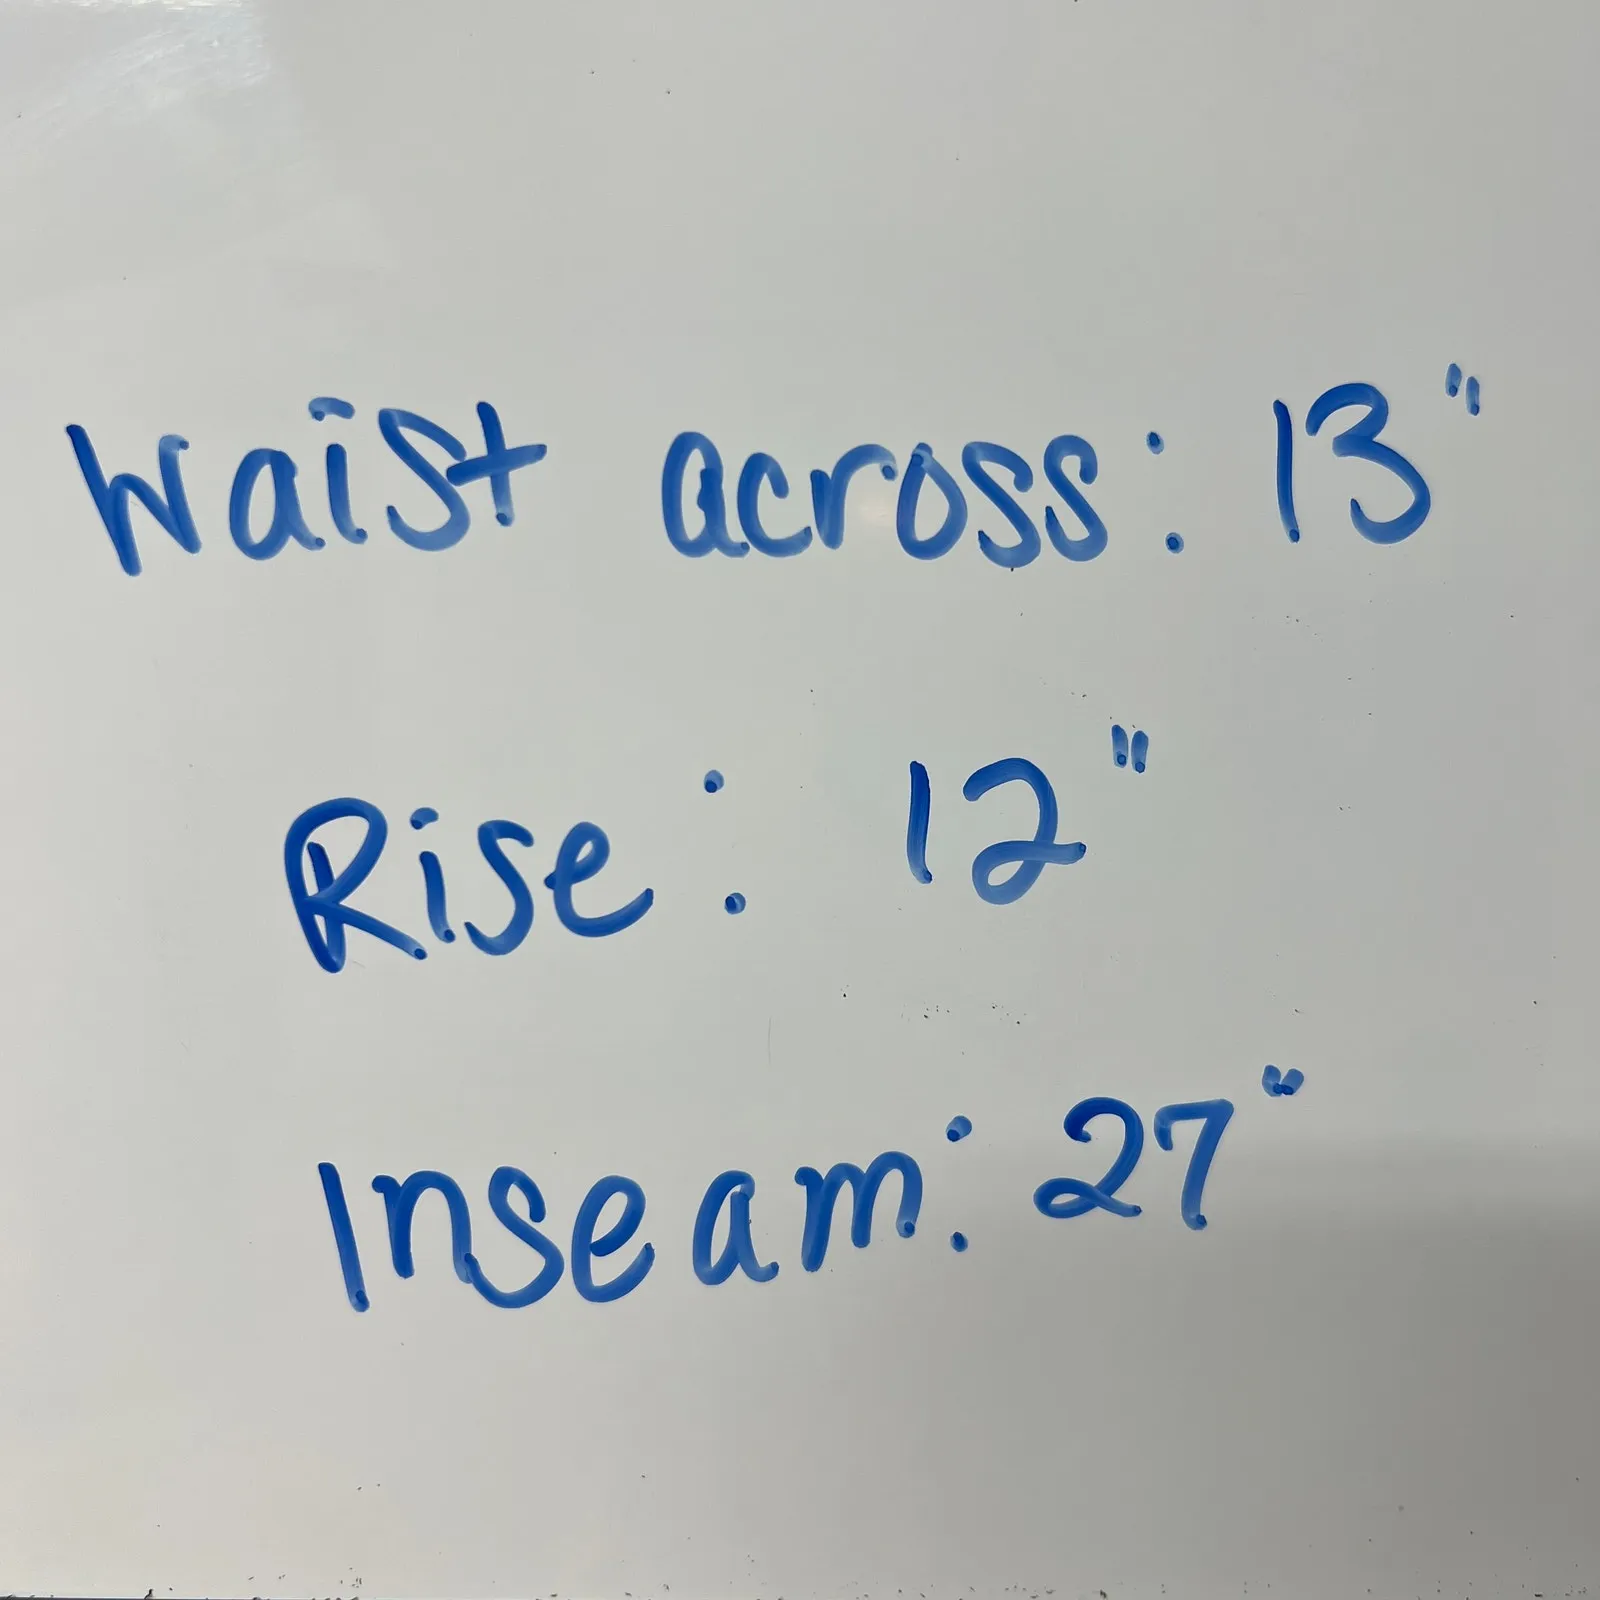 Waist across: 13"
Rise: 12"
Inseam: 27"